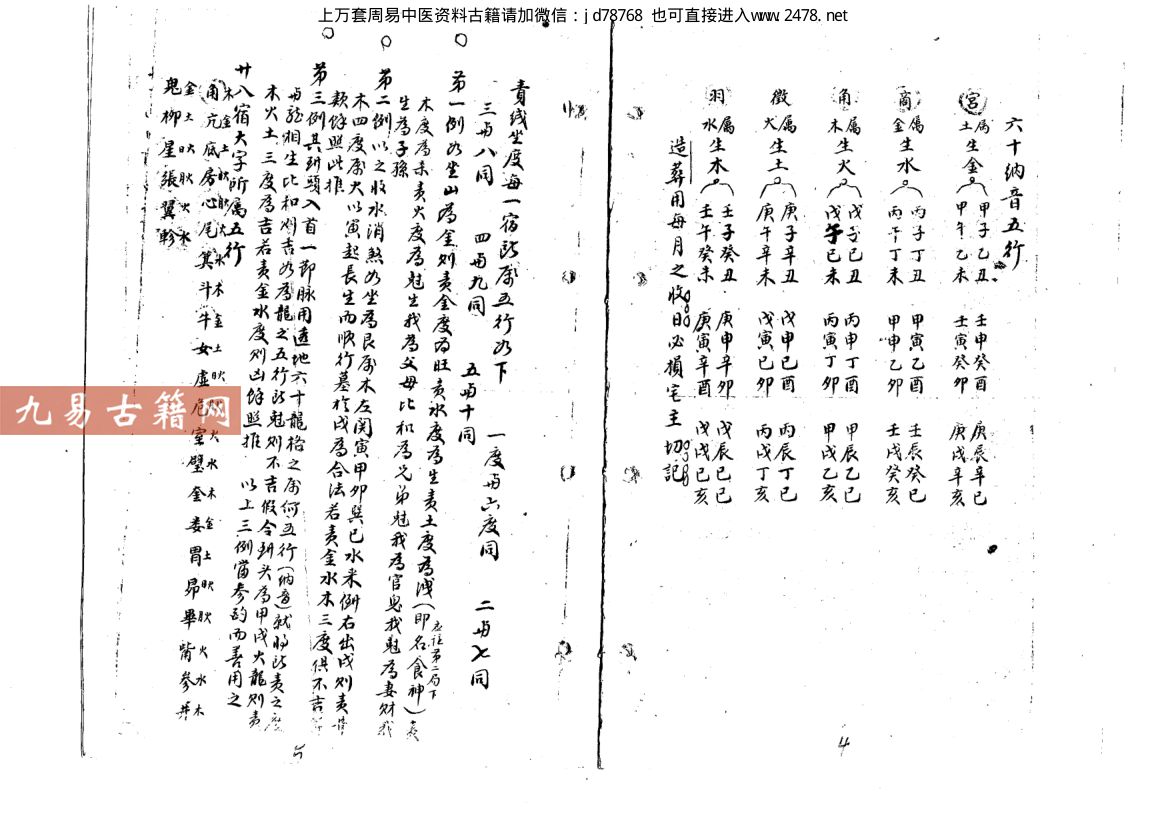 上万套周易中医资料古籍请加微信：jd78768 也可直接进入www.2478.net
六十纳音五行
宫 属土 生金 甲子乙丑 甲午乙未 壬申癸酉 壬寅癸卯 庚辰辛巳 庚戌辛亥
商 属金 生水 丙子丁丑 丙午丁未 甲寅乙酉 甲申乙卯 壬辰癸巳 壬戌癸亥
角 属木 生火 戊子己丑 戊午己未 丙申丁酉 丙寅丁卯 甲辰乙巳 甲戌乙亥
徵 属火 生土 庚子辛丑 庚午辛未 戊申己酉 戊寅己卯 丙辰丁巳 丙戌丁亥
羽 属水 生木 壬子癸丑 壬午癸未 庚申辛卯 庚寅辛酉 戊辰己巳 戊戌己亥
造葬用每月之收日必損宅主切記
4
責线坐度每一宿所属五行如下 一度与六度同 二与七同
三与八同 四与九同 五与十同
第一例如坐山為金则責金度為旺責水度為生責土度為洩（即名食神）責
木度為 責火度為尅生我為父母比和為兄弟尅我為官鬼我尅為妻財我
生為子孫
第二例以之收水消煞如坐為艮属木左関寅甲卯巽巳水来倒右出戌则責
木四度属火以寅起長生而順行墓於戌為合法若責金水木三度俱不吉
数餘照此推
第三例其到頭入首一節脉用透地六十龍格之属何五行（纳音）就将所責之度
与龍相生比和则吉如為龍之五行所尅则不吉假令到头為甲戌火龍则責
木火土三度為吉若責金水度则凶餘照推 以上三例當参酌而善用之
廿八宿大字所属五行
角亢底房心尾箕斗牛女虚危室壁奎娄胃昴畢觜参井
木金土 火水木金土 火水木金土 火水木
鬼柳星張翼軫
金土 火水
5
九易古籍网